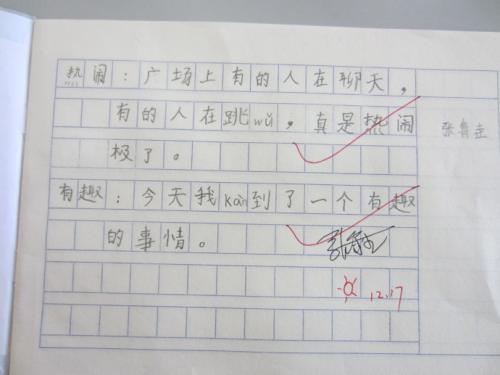 热闹：广场上有的人在聊天，
有的人在跳wǔ，真是热闹
极了。
有趣：今天我kàn到了一个有趣
的事情。
12.17